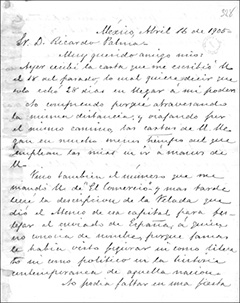 326
México, Abril 16 de 1905
Sr. D. Ricardo Palma
Muy querido amigo mio:
Ayer recibí la carta que me escribió U.
el 18 del pasado, lo cual quiere decir que
esta echó 28 dias en llegar á mi poder.
No comprendo porqué atravesando
la misma distancia, y
el mismo camino las cartas de U. lle-
gan en mucho menos tiempo del que
emplean las mias en ir á manos de
U.
Vino tambien el numero que me
mandó U. de "El Comercio" y mas tarde
leeré la descripcion de la Velada que
dió el Ateneo de esa capital para
al enviado de España, á quien
no conocia de nombre porque jamas
le habia visto figurar ni como litera-
to ni como político en la historia
contemporanea de aquella nacion.
No podia faltar en esa fiesta